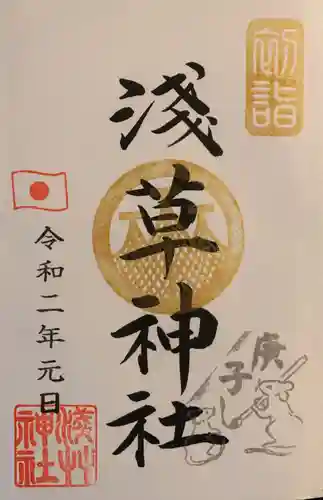 初詣
淺草神社
令和二年元日
庚子
淺草神社